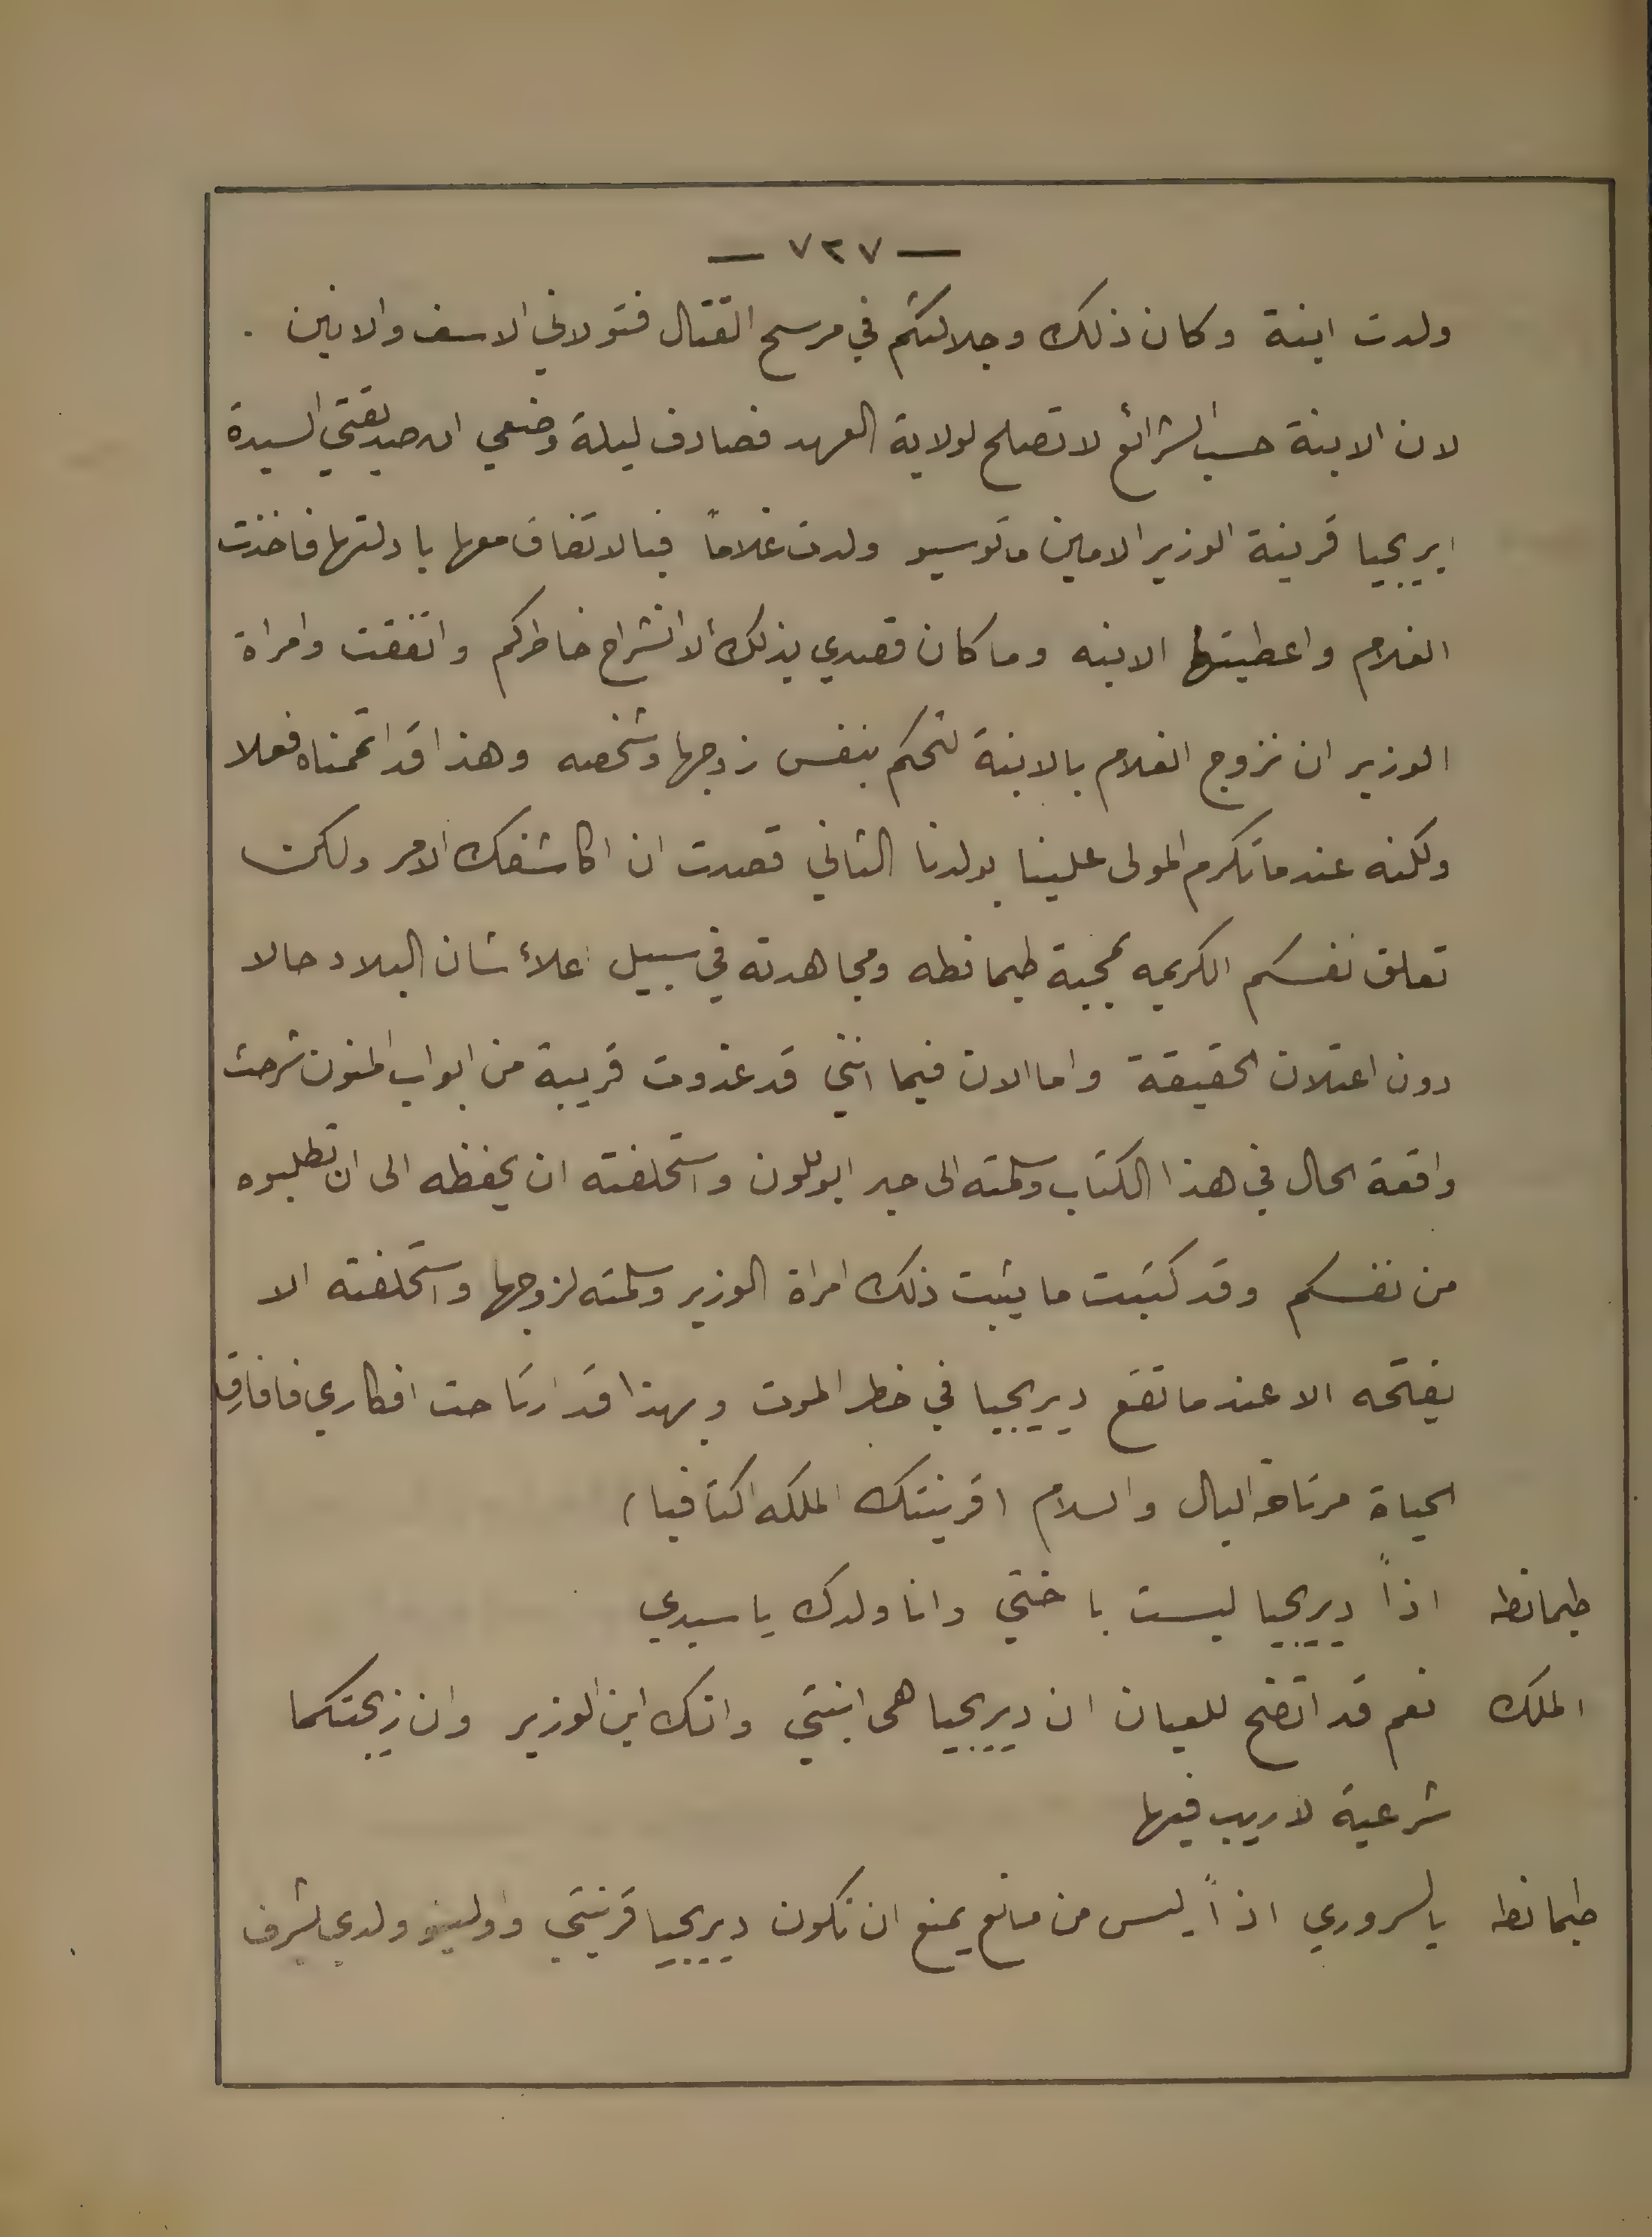 — ٧٢٧ —
ولدت ابنة وكان ذلك وجلالتكم في مرسح القتال فتولاني الاسف والانين .
لان الابنة حسب الشرائع لا تصلح لولاية العهد فصادف ليلة وضعي ان صديقتي السيدة
ايريجيا قرينة الوزير الامين ماتوسيو ولدت غلاماً فبالاتفاق معها بادلتها فاخذت
الغلام واعطيتها الابنه وما كان قصدي بذلك ألا انشراح خاطركم واتفقت وامراة
الوزير ان نزوج الغلام بالابنة لتحكم بنفس زوجها وشخصه وهذا قد اتممناه فعلا
ولكنه عندما تكرم المولى علينا بولدنا الثاني قصدت ان اكاشفك الامر ولكن
تعلق نفسكم الكريمه بمحبة طيمانطه ومجاهدته في سبيل اعلاء شان البلاد حالا
دون اعتلان الحقيقة واما الان فبما انني قد غدوت قريبة من ابواب المنون شرحت
واقعة الحال في هذا الكتاب وسلمته الى حبر ابوللون واستحلفته ان يحفظه الى ان تطلبوه
من نفسكم وقد كتبت ما يثبت ذلك امراة الوزير وسلمته لزوجها واستحلفته الا
يفتحه الا عندما تقع ديريجيا في خطر الموت وبهذا قد ارتاحت افكاري فافارق
الحياة مرتاحة البال والسلام (قرينتك الملكه اكتافيا)
طيمانطه اذاً ديريجيا ليست باختي وانا ولدك يا سيدي
الملك نعم قد اتضح للعيان ان ديريجيا هى ابنتي وانك ابن الوزير وان زيجتكما
شرعية لا ريب فيها
طيمانطه يالسروري اذاً ليس من مانع يمنع ان تكون ديريجيا قرينتي واولينو ولدي بشرف